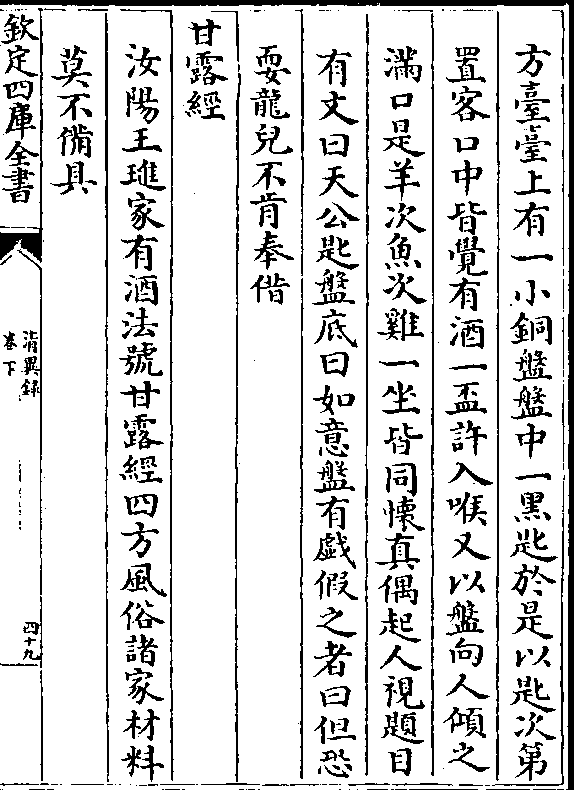 方臺臺上有一小銅盤盤中一黑匙於是以匙次第
置客口中皆覺有酒一盃許入喉又以盤向人傾之
滿口是羊次魚次雞一坐皆同懐真偶起人視題目
有丈曰天公匙盤底曰如意盤有戯假之者曰但恐
耍龍兒不肯奉偕
甘露經
汝陽王璡家有酒法號甘露經四方風俗諸家材料
莫不備具
欽定四庫全書
清異錄
卷下
四十九